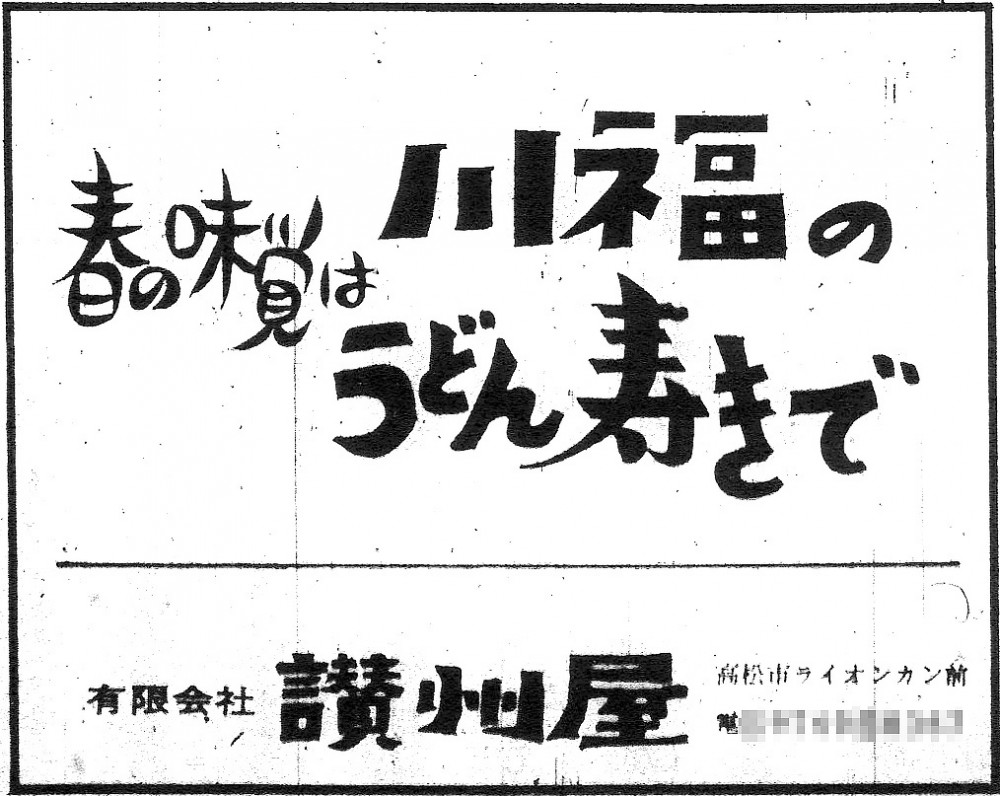 春の味覚は
川福の
うどん寿きで
有限会社
讃州屋
高松市ライオンカン前
電